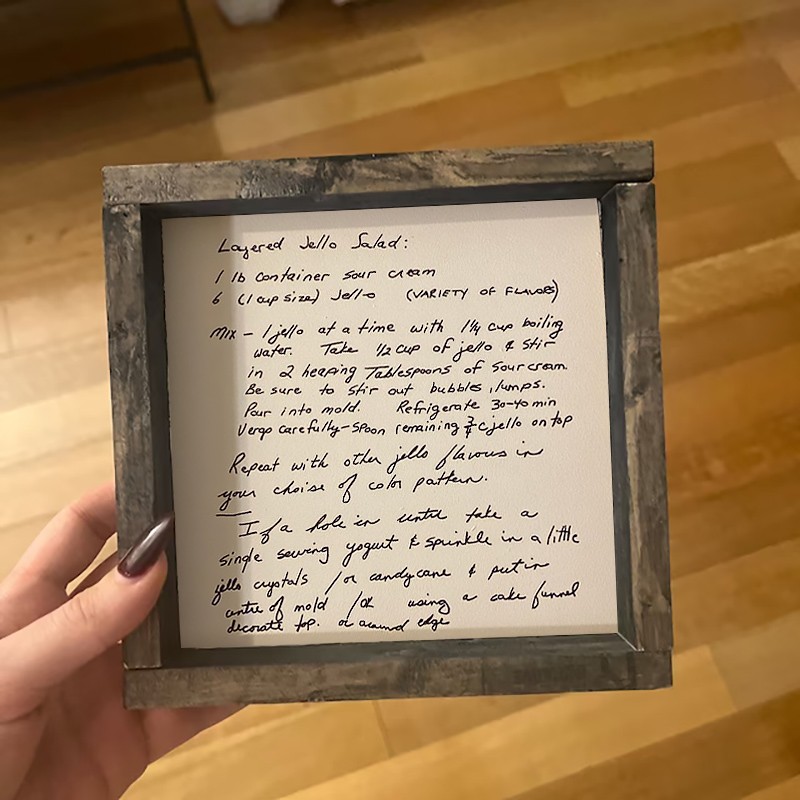 Layered Jello Salad:
1 lb container sour cream
6 (1 cup size) Jell-o (VARIETY OF FLAVORS)
MIX - 1 jello at a time with 1 1/4 cup boiling
water. Take 1/2 cup of jello & stir
in 2 heaping Tablespoons of sour cream.
Be sure to stir out bubbles, lumps.
Pour into mold. Refrigerate 30-40 min
carefully - spoon remaining 3/4 c jello on top
Repeat with other jello flavours in
your choise of color pattern.
If a hole in take a
single serving yogurt & sprinkle in a little
jello crystals /or candy cane & put in
centre of mold /OR using a cake funnel
decorate top. or around edge